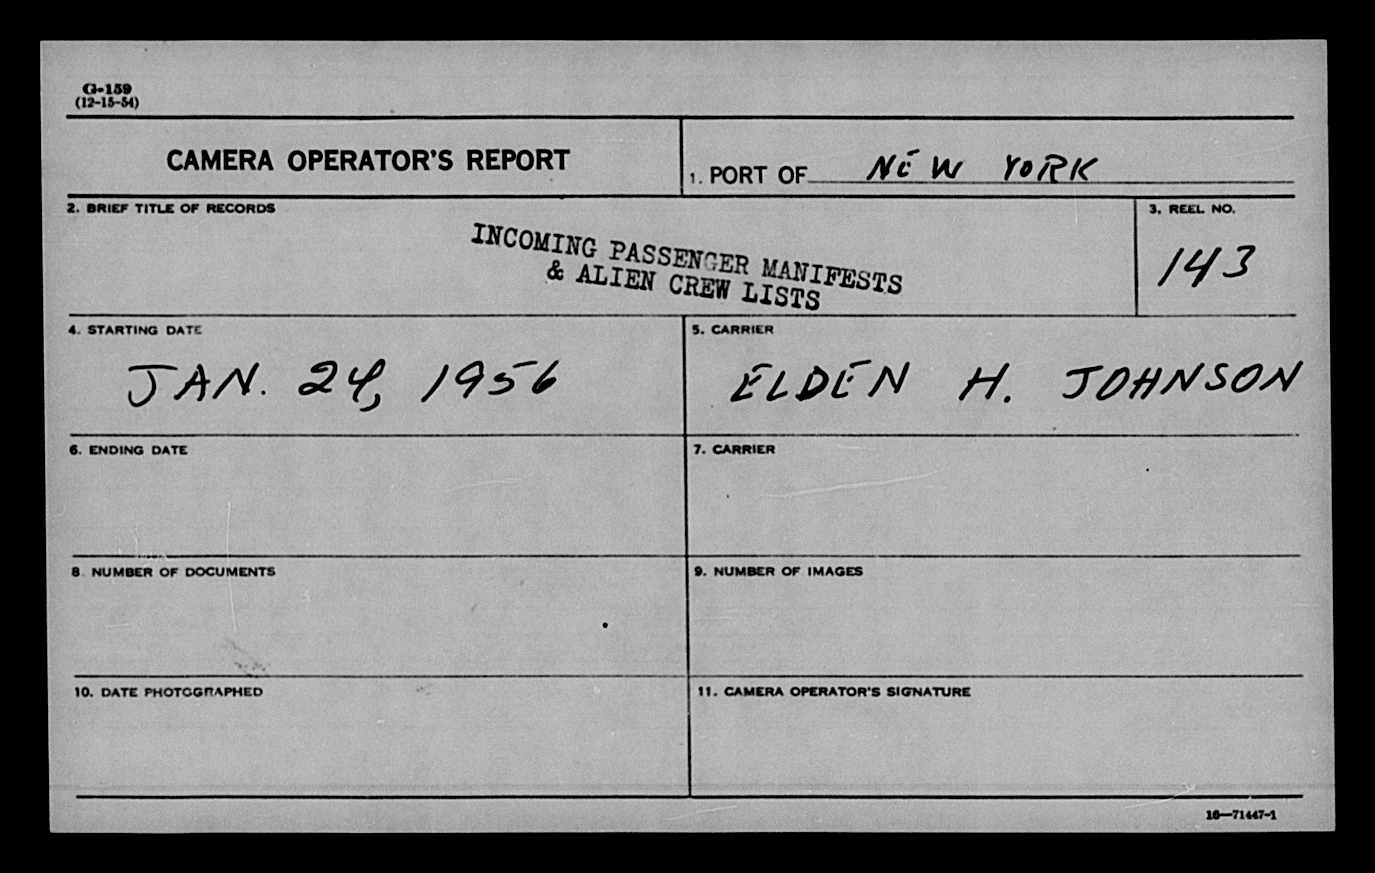 G-159
(12-15-54)
CAMERA OPERATOR'S REPORT
1. PORT OF NEW YORK
2. BRIEF TITLE OF RECORDS
INCOMING PASSENGER MANIFESTS
& ALIEN CREW LISTS
3. REEL NO.
143
4. STARTING DATE
JAN. 24, 1956
5. CARRIER
ELDEN H. JOHNSON
6. ENDING DATE
7. CARRIER
8. NUMBER OF DOCUMENTS
9. NUMBER OF IMAGES
10. DATE PHOTOGRAPHED
11. CAMERA OPERATOR'S SIGNATURE
16—71447-1